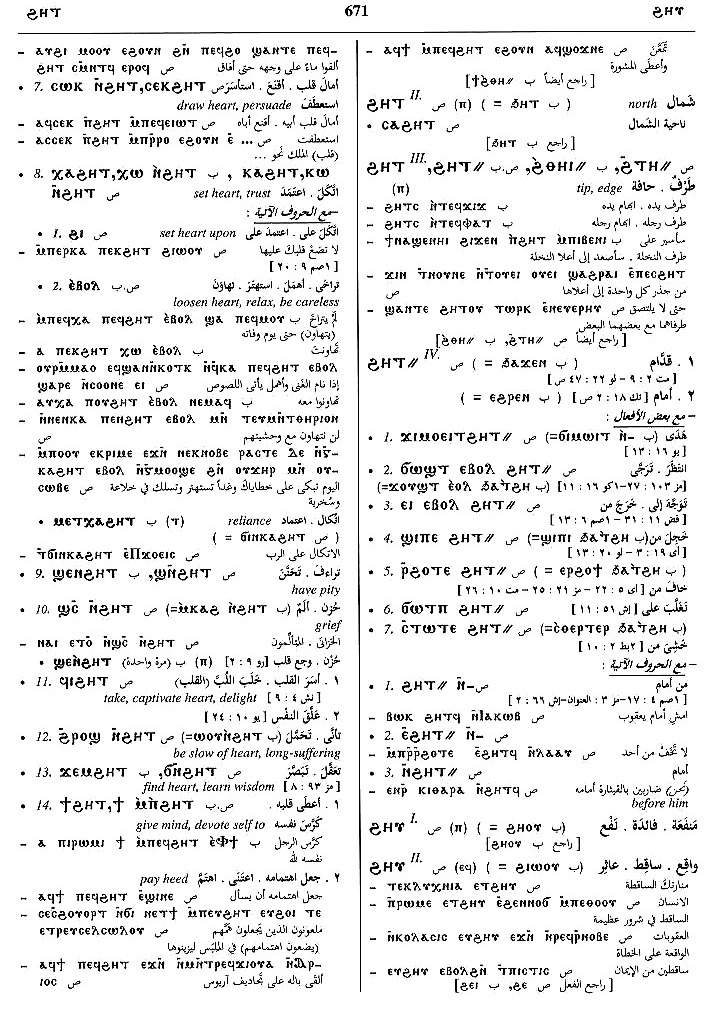 ϩⲏⲧ 671 ϩⲏⲩ
– ⲁⲩϯⲓ ⲙⲟⲟⲩ ⲉϩⲟⲩⲛ ϩⲙ̄ ⲡⲉϥϩⲟ ϣⲁⲛⲧⲉ ⲡⲉϥ-
ϩⲏⲧ ⲥⲙⲛ̄ⲧϥ ⲉⲣⲟϥ ألقوا ماءً على وجهه حتى أفاق
• 7. ⲥⲱⲕ ⲛ̄ϩⲏⲧ, ⲥⲉⲕϩⲏⲧ ص أمال قلب . أقنع . استأسر
draw heart, persuade استعطف
– ⲁϥⲥⲉⲕ ⲡϩⲏⲧ ⲙ̄ⲡⲉϥⲉⲓⲱⲧ ص أمال قلب أبيه . أقنع أباه
– ⲁⲥⲥⲉⲕ ⲡϩⲏⲧ ⲙ̄ⲡⲣ̄ⲣⲟ ⲉϩⲟⲩⲛ ⲉ̀ ... ص استعطفت
(قلب) الملك نحو ...
• 8. ⲭⲁϩⲏⲧ, ⲭⲱ ⲛ̀ϩⲏⲧ ب , ⲕⲁϩⲏⲧ, ⲕⲱ
ⲛ̄ϩⲏⲧ ص set heart, trust اتَّكلَ . اعتمَدَ
– مع الحروف الآتية :
• 1. ϩⲓ ص set heart upon اتَّكلَ . اعتمدَ على
– ⲙ̄ⲡⲉⲣⲕⲁ ⲡⲉⲕϩⲏⲧ ϩⲓⲱⲟⲩ ص لا تضع قلبك عليها
[١صم ٩ : ٢٠]
• 2. ⲉ̀ⲃⲟⲗ ص.ب تراخى . أهمل . استهتر . تهاون
loosen heart, relax, be careless
– ⲙ̄ⲡⲉϥⲭⲁ ⲡⲉϥϩⲏⲧ ⲉ̀ⲃⲟⲗ ϣⲁ ⲡⲉϥⲙⲟⲩ ب لم يتراخَ
(يتهاون) حتى يوم وفاته
– ⲁ ⲡⲉⲕϩⲏⲧ ⲭⲱ ⲉ̀ⲃⲟⲗ ب تهاونت
– ⲟⲩⲣⲙ̄ⲙⲁⲟ ⲉϥϣⲁⲛⲛ̄ⲕⲟⲧⲕ ⲛ̄ϥⲕⲁ ⲡⲉϥϩⲏⲧ ⲉⲃⲟⲗ
ϣⲁⲣⲉ ⲛ̄ⲥⲟⲟⲛⲉ ⲉⲓ ص إذا نام الغنى وأهمل يأتى اللصوص
– ⲁⲩⲭⲁ ⲡⲟⲩϩⲏⲧ ⲉ̀ⲃⲟⲗ ⲛⲉⲙⲁϥ ب تهاونوا معه
– ⲛ̄ⲛⲉⲛⲕⲁ ⲡⲉⲛϩⲏⲧ ⲉⲃⲟⲗ ⲙⲛ̄ ⲧⲉⲩⲙⲛ̄ⲧⲑⲏⲣⲓⲟⲛ
ص لن نتهاون مع وحشيتهم
– ⲙ̄ⲡⲟⲟⲩ ⲉⲕⲣⲓⲙⲉ ⲉϫⲛ̄ ⲛⲉⲕⲛⲟⲃⲉ ⲣⲁⲥⲧⲉ ⲇⲉ ⲛ̄ⲅ̄-
ⲕⲁϩⲏⲧ ⲉⲃⲟⲗ ⲛ̄ⲅ̄ⲙⲟⲟϣⲉ ϩⲛ ⲟⲩϫⲏⲣ ⲙⲛ̄ ⲟⲩ-
ⲥⲱⲃⲉ ص اليوم تبكى على خطاياك وغداً تستهتر وتسلك فى خلاعة
وسُخرية
• ⲙⲉⲧⲭⲁϩⲏⲧ ب (ⲧ) reliance اتكال . اعتماد
( = ϭⲓⲛⲕⲁϩⲏⲧ ص )
– ⲧϭⲓⲛⲕⲁϩⲏⲧ ⲉ̀Ⲡϫⲟⲉⲓⲥ ص الاتكال على الرب
• 9. ϣⲉⲛϩⲏⲧ ب, ϣⲛ̄ϩⲏⲧ ص تراءف . تحنّن
have pity
• 10. ϣⲥ̄ ⲛ̄ϩⲏⲧ ص (=ⲙ̀ⲕⲁϩ ⲛ̀ϩⲏⲧ ب) حُزن . ألَم
grief
– ⲛⲁⲓ ⲉⲧⲟ̀ ⲛ̄ϣⲥ̄ ⲛ̄ϩⲏⲧ ص الحَزانى . المتألمون
• ϣⲉⲛϩⲏⲧ ص (ⲡ) ب (مرة واحدة) حُزن . وجع قلب [رو ٩ : ٢]
• 11. ϥⲓϩⲏⲧ ص ١ . أسر القلب . خَلَبَ اللُّبَّ (القلب)
take, captivate heart, delight [نش ٤ : ٩]
٢ . عَلَّقَ النفْس [يو ١٠ : ٢٤]
• 12. ϩⲣⲟϣ ⲛ̄ϩⲏⲧ ص (=ⲱⲟⲩⲛ̀ϩⲏⲧ ب) تأنَّى . تحمَّل
be slow of heart, long-suffering
• 13. ϫⲉⲙϩⲏⲧ ب, ϭⲛ̄ϩⲏⲧ ص تعقَّل . تبصَّر
find heart, learn wisdom [مز ٩٣ : ٨]
• 14. ϯϩⲏⲧ, ϯ ⲙ̄ⲡϩⲏⲧ ص.ب ١ . أعطى قلبه .
give mind, devote self to كرَّس نفسه
– ⲁ ⲡⲓⲣⲱⲙⲓ ϯ ⲙ̄ⲡⲉϥϩⲏⲧ ⲉ̀Ⲫϯ ب كرَّس الرجل
نفسه لله
pay heed ٢ . جعل اهتمامه . اعتَنَى . اهتمَّ
– ⲁϥϯ ⲡⲉϥϩⲏⲧ ⲉ̀ϣⲓⲛⲉ ص جعل اهتمامه أن يسأل
– ⲥⲉⲥϩⲟⲩⲟⲣⲧ ⲛ̄ϭⲓ ⲛⲉⲧϯ ⲙ̄ⲡⲉⲩϩⲏⲧ ⲉⲩϩⲟⲓ ⲧⲉ
ⲉⲧⲣⲉⲩⲥⲉⲗⲥⲱⲗⲟⲩ ص ملعونون الذين يجعلون همَّهم
(يضعون اهتمامهم) فى الملبَس ليزينوها
– ⲁϥϯ ⲡⲉϥϩⲏⲧ ⲉϫⲛ̄ ⲛ̄ⲙⲛ̄ⲧⲣⲉϥϫⲓⲟⲩⲁ ⲛ̄Ⲁⲣ-
ⲓⲟⲥ ص ألقى باله على تجاديف آريوس
– ⲁϥϯ ⲙ̄ⲡⲉϥϩⲏⲧ ⲉϩⲟⲩⲛ ⲁϥϣⲟϫⲛⲉ ص تمَعَّنَ
وأعطى المشورة
[راجع أيضاً ب //ϯⲑϩⲏ]
ϩⲏⲧ II. ص (ⲡ) ( = ϧⲏⲧ ب ) north شمال
• ⲥⲁϩⲏⲧ ص ناحية الشمال
[راجع ب ϧⲏⲧ]
ϩⲏⲧ III., ϩⲏⲧ// ص.ب, ϩⲑⲏⲓ// ب, ϩⲧⲏ// ص
(ⲡ) tip, edge طرَفٌ . حافة
– ϩⲏⲧⲥ ⲛ̄ⲧⲉϥϫⲓϫ ب طرف يده . إبهام يده
– ϩⲏⲧⲥ ⲛ̄ⲧⲉϥⲫⲁⲧ ب طرف رجله . إبهام رجله
– ϯⲛⲁϣⲉⲛⲏⲓ ϩⲓϫⲉⲛ ⲛ̀ϩⲏⲧ ⲙ̀ⲡⲓⲃⲉⲛⲓ ب سأسير على
طرف النخلة . سأصعد إلى أعلا النخلة
– ϫⲓⲛ ⲧⲛⲟⲩⲛⲉ ⲛ̄ⲧⲟⲩⲉⲓ ⲟⲩⲉⲓ ϣⲁϩⲣⲁⲓ ⲉⲡⲉⲥϩⲏⲧ
ص من جذر كل واحدة إلى أعلاها
– ϣⲁⲛⲧⲉ ϩⲏⲧⲟⲩ ⲧⲱⲣⲕ ⲉ̀ⲛⲉⲩⲉⲣⲏⲩ ص حتى لا يلتصق
طرفاهما مع بعضهما البعض
[راجع أيضاً ص //ϩⲧⲏ, ب //ϩⲑⲏ]
ϩⲏⲧ// IV. ص ( = ϧⲁϫⲉⲛ ب ) ١ . قدّام
[مت ٢ : ٩ – لو ٢٢ : ٤٧ ص]
٢ . أمام [تك ١٨ : ٢ ص] ( = ⲉϩⲣⲉⲛ ب )
– مع بعض الأفعال :
• 1. ϫⲓⲙⲟⲉⲓⲧϩⲏⲧ// ص (=ϭⲓⲙⲱⲓⲧ ⲛ̀- ب) هَدَى
[يو ١٦ : ١٣]
• 2. ϭⲱϣⲧ ⲉⲃⲟⲗ ϩⲏⲧ// ص انتظَرَ . تَرَجَّى
(=ϫⲟⲩϣⲧ ⲉ̀ⲃⲟⲗ ϧⲁⲧϩⲏ ب) [مز ١٠٣ : ٢٧ –١كو ١٦ : ١١]
• 3. ⲉⲓ ⲉⲃⲟⲗ ϩⲏⲧ// ص تَوَجَّهَ إلى . خَرَجَ من
[قض ١١ : ٣١ – ١صم ٦ : ١٣]
• 4. ϣⲓⲡⲉ ϩⲏⲧ// ص (=ϣⲓⲡⲓ ϧⲁⲧϩⲏ ب) خَجِلَ من
[أى ١٩ : ٣ – لو ٢٠ : ١٣]
• 5. ⲣ̄ϩⲟⲧⲉ ϩⲏⲧ// ص ( = ⲉⲣϩⲟϯ ϧⲁⲧϩⲏ ب )
خاف من [أى ٥ : ٢٢ – مز ٢١ : ٢٥ – مت ١٠ : ٢٦]
• 6. ϭⲱⲧⲡ ϩⲏⲧ// ص تغلّب على [إش ٥١ : ١١]
• 7. ⲥⲧⲱⲧⲉ ϩⲏⲧ// ص (=ⲥ̀ⲑⲉⲣⲧⲉⲣ ϧⲁⲧϩⲏ ب)
خشِىَ من [٢بط ٢ : ١٠]
– مع الحروف الآتية :
• 1. ϩⲏⲧ// ⲛ̄- ص من أمام
[١صم ٤ : ١٧ – مز ٣ : العنوان – إش ٦٦ : ٢]
– ⲃⲱⲕ ϩⲏⲧϥ ⲛ̄Ⲓⲁⲕⲱⲃ ص امش أمام يعقوب
• 2. ⲉ̀ϩⲏⲧ// ⲛ̄- ص
– ⲙ̄ⲡⲣ̄ⲣϩⲟⲧⲉ ⲉ̀ϩⲏⲧϥ ⲛ̄ⲗⲁⲁⲩ ص لا تَخَف من أحد
• 3. ⲛ̄ϩⲏⲧ// ص أمام
– ⲉⲛⲣ ⲕⲓⲑⲁⲣⲁ ⲛ̄ϩⲏⲧϥ ص (نحن) ضاربين بالقيثارة أمامه
before him
ϩⲏⲩ I. ص (ⲡ) ( = ϩⲏⲟⲩ ب) مَنفَعَة . فائدة . نَفع
[راجع ب ϩⲏⲟⲩ]
ϩⲏⲩ II. ص (ⲉϥ) ( = ϩⲓⲱⲟⲩ ب) واقع . ساقط . عاثر
– ⲧⲉⲕⲗⲩⲭⲛⲓⲁ ⲉⲧϩⲏⲩ ص منارتك الساقطة
– ⲡⲣⲱⲙⲉ ⲉⲧϩⲏⲩ ⲉ̀ϩⲉⲛⲛⲟϭ ⲙ̄ⲡⲉⲑⲟⲟⲩ ص الإنسان
الساقط فى شرور عظيمة
– ⲛ̄ⲕⲟⲗⲁⲥⲓⲥ ⲉⲧϩⲏⲩ ⲉϫⲛ̄ ⲛ̄ⲣⲉϥⲣ̄ⲛⲟⲃⲉ ص العقوبات
الواقعة على الخطاة
– ⲉⲩϩⲏⲩ ⲉⲃⲟⲗϩⲛ̄ ⲧⲡⲓⲥⲧⲓⲥ ص ساقطين من الإيمان
[راجع الفعل ص ϩⲉ, ب ϩⲉⲓ]